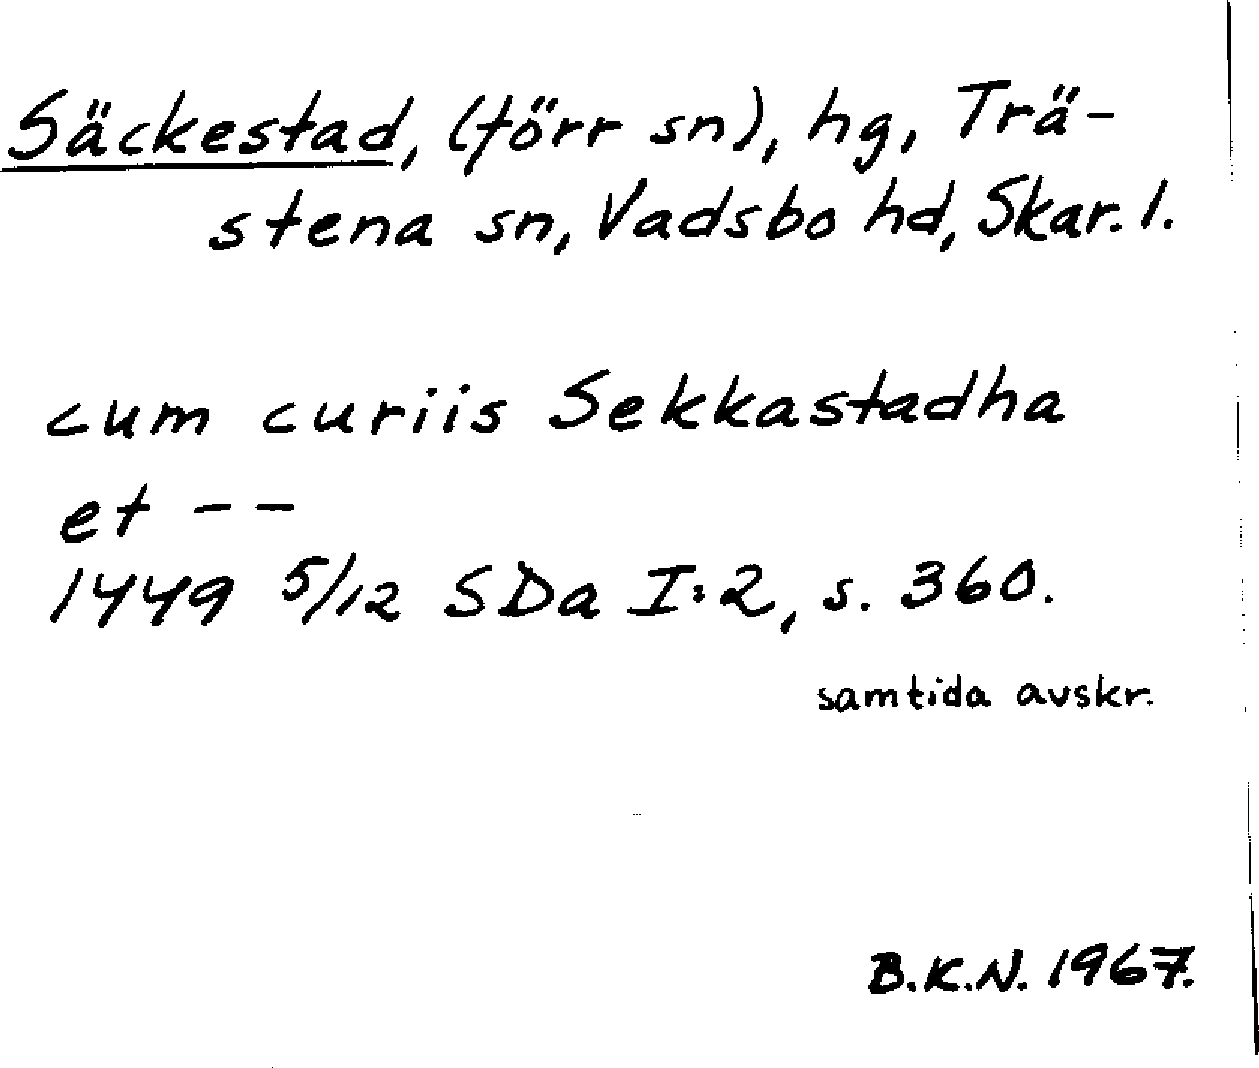 Säckestad, (förr sn), hg, Trä-
stena sn, Vadsbo hd, Skar. l.
cum curiis Sekkastadha
et --
1449 5/12 SDa I:2, s. 360.
samtida avskr.
B.K.N. 1967.